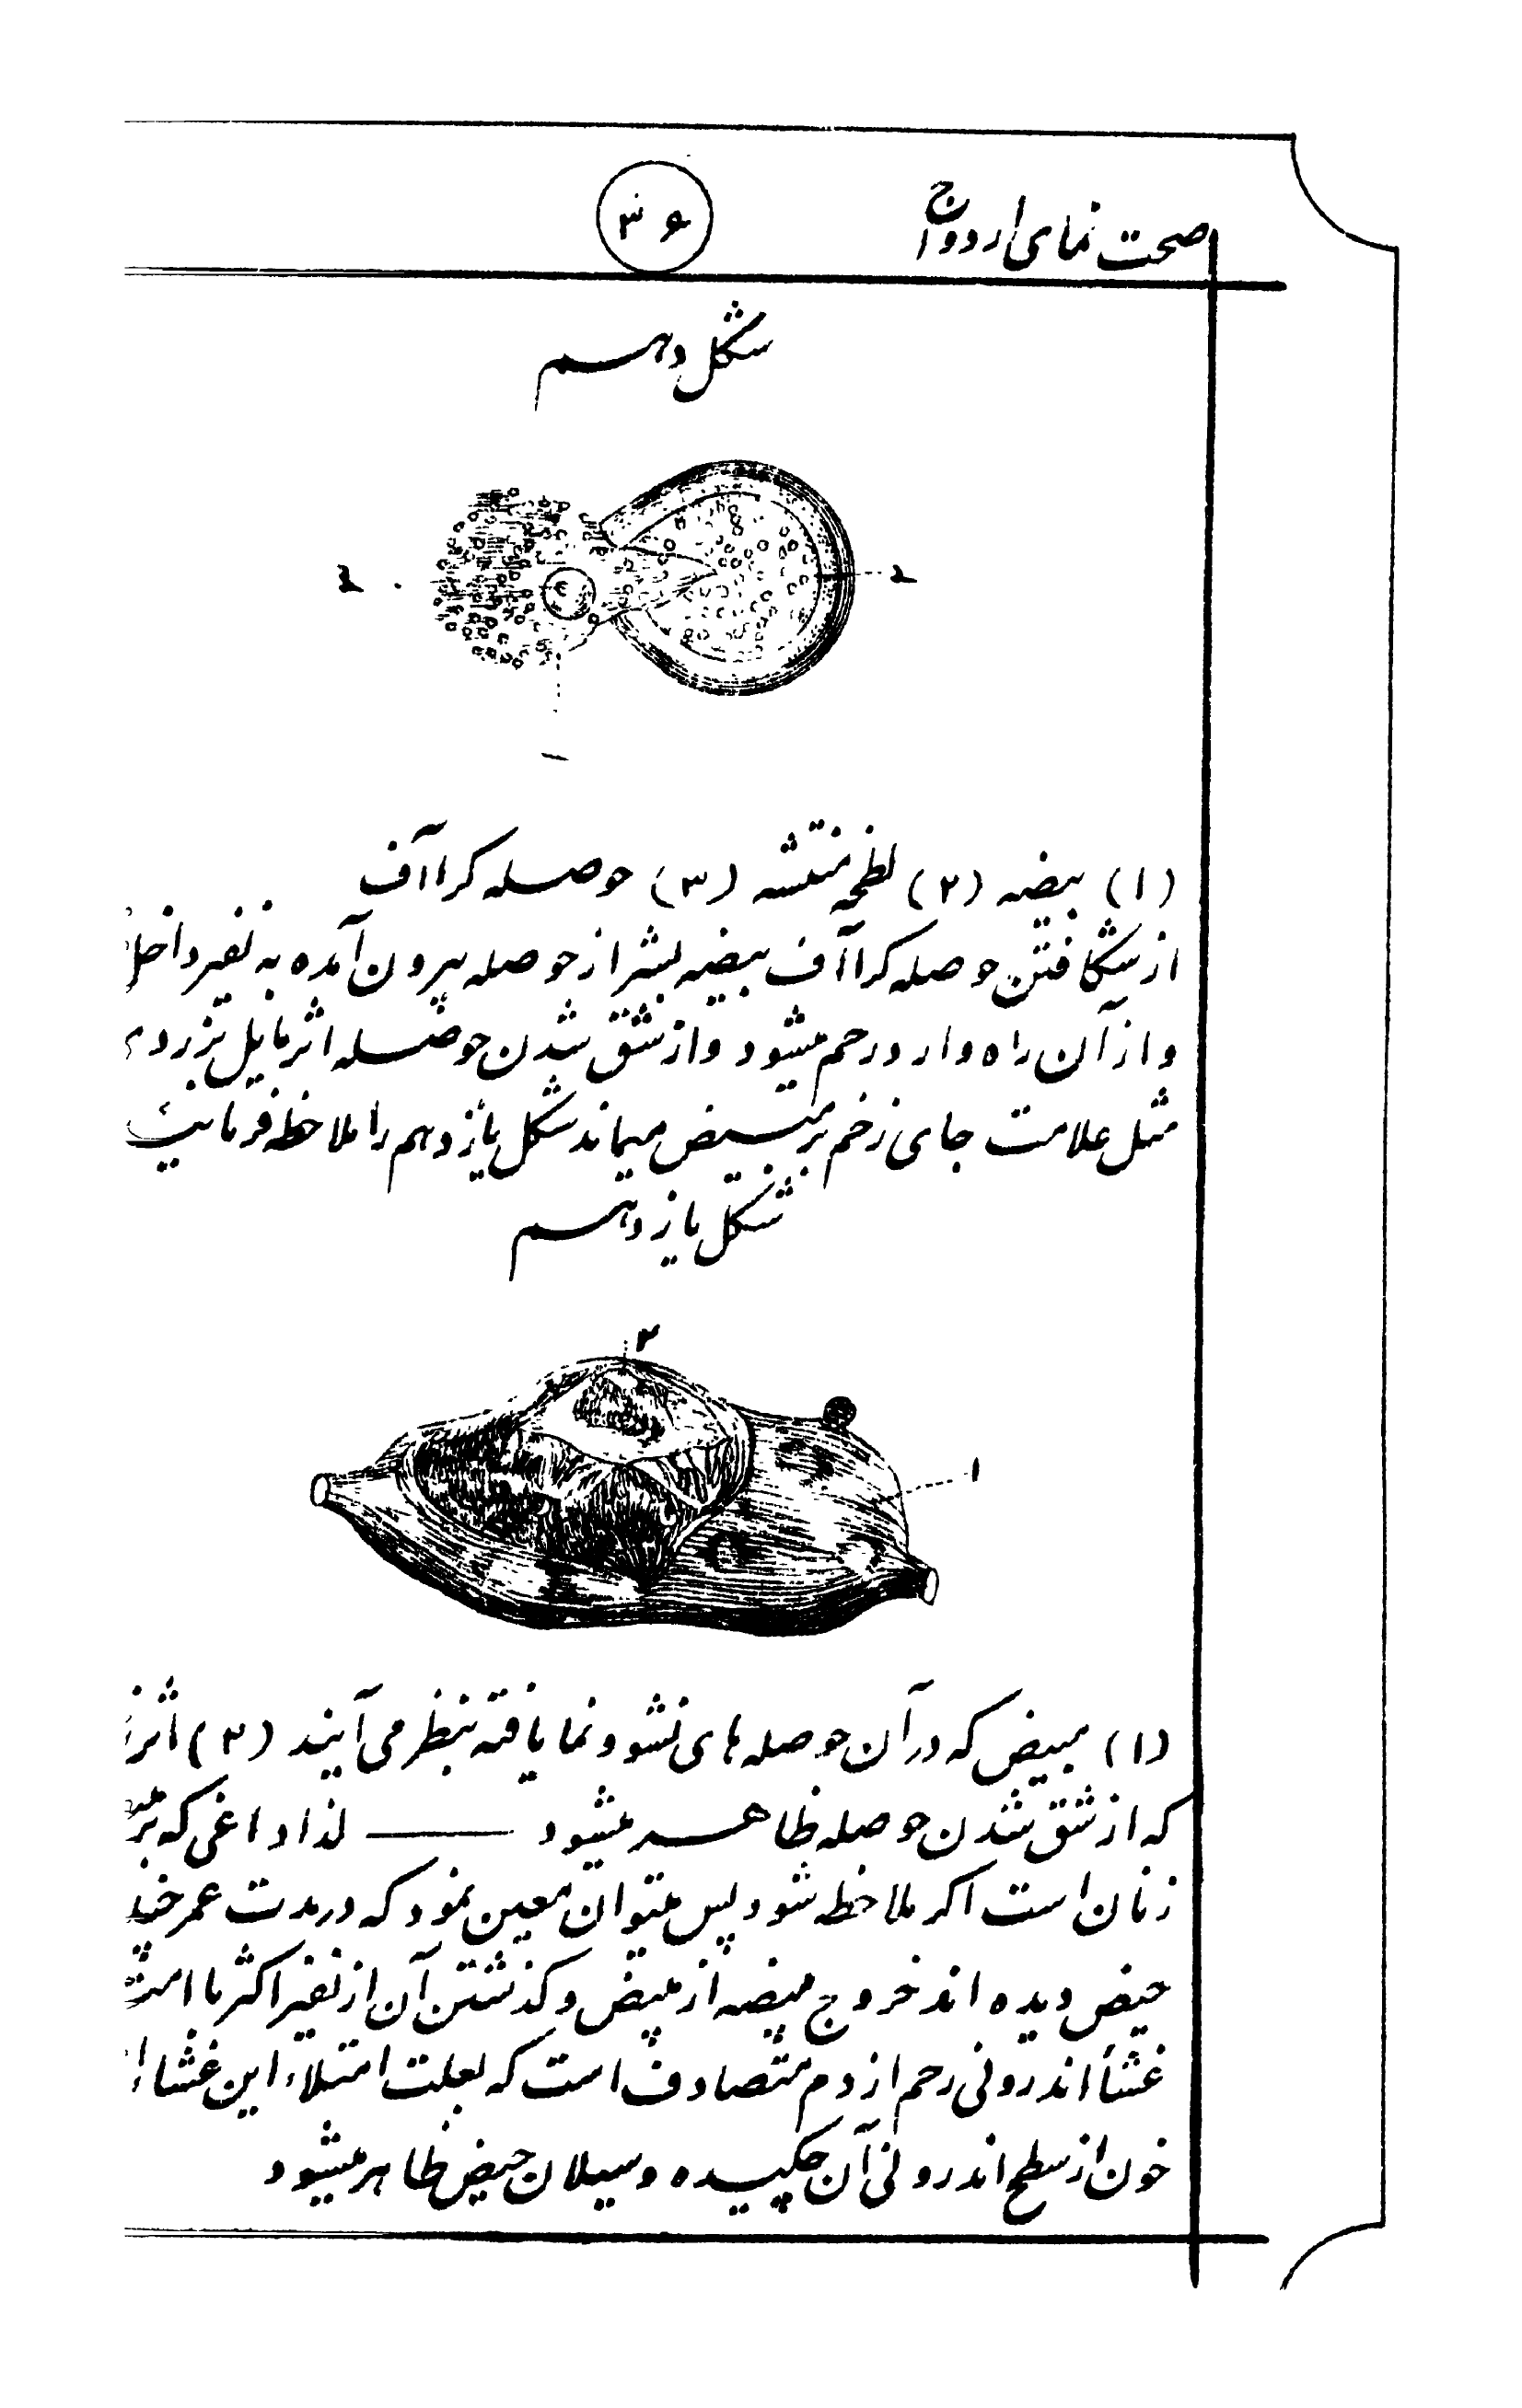 صحت نمای ازدواج
۳۶
شکل دهم
۲
۳
۱
(۱) بیضه (۲) لطخه منتشه (۳) حوصله کراآف
از شکافتن حوصله کراآف بیضه بشر از حوصله بیرون آمده به نفیر داخل
و از آن راه وارد رحم میشود و از شق شدن حوصله اثر مایل بزردی
مثل علامت جای زخم بر مبیض میماند شکل یازدهم را ملاحظه فرمائید
شکل یازدهم
۲
۱
(۱) مبیض که در آن حوصله های نشو و نما یافته بنظر می آیند (۲) اثر
که از شق شدن حوصله ظاهر میشود —— لذا داغی که بر
زنان است اکر ملاحظه شود پس میتوان معین نمود که در مدت عمر چند
حیض دیده اند خروج بیضه از مبیض و کذشتن آن از نفیر اکثر با
غشأ اندرونی رحم از دم متصادف است که بعلت امتلاء این غشاء
خون از سطح اندرونی آن چکیده و سیلان حیض ظاهر میشود